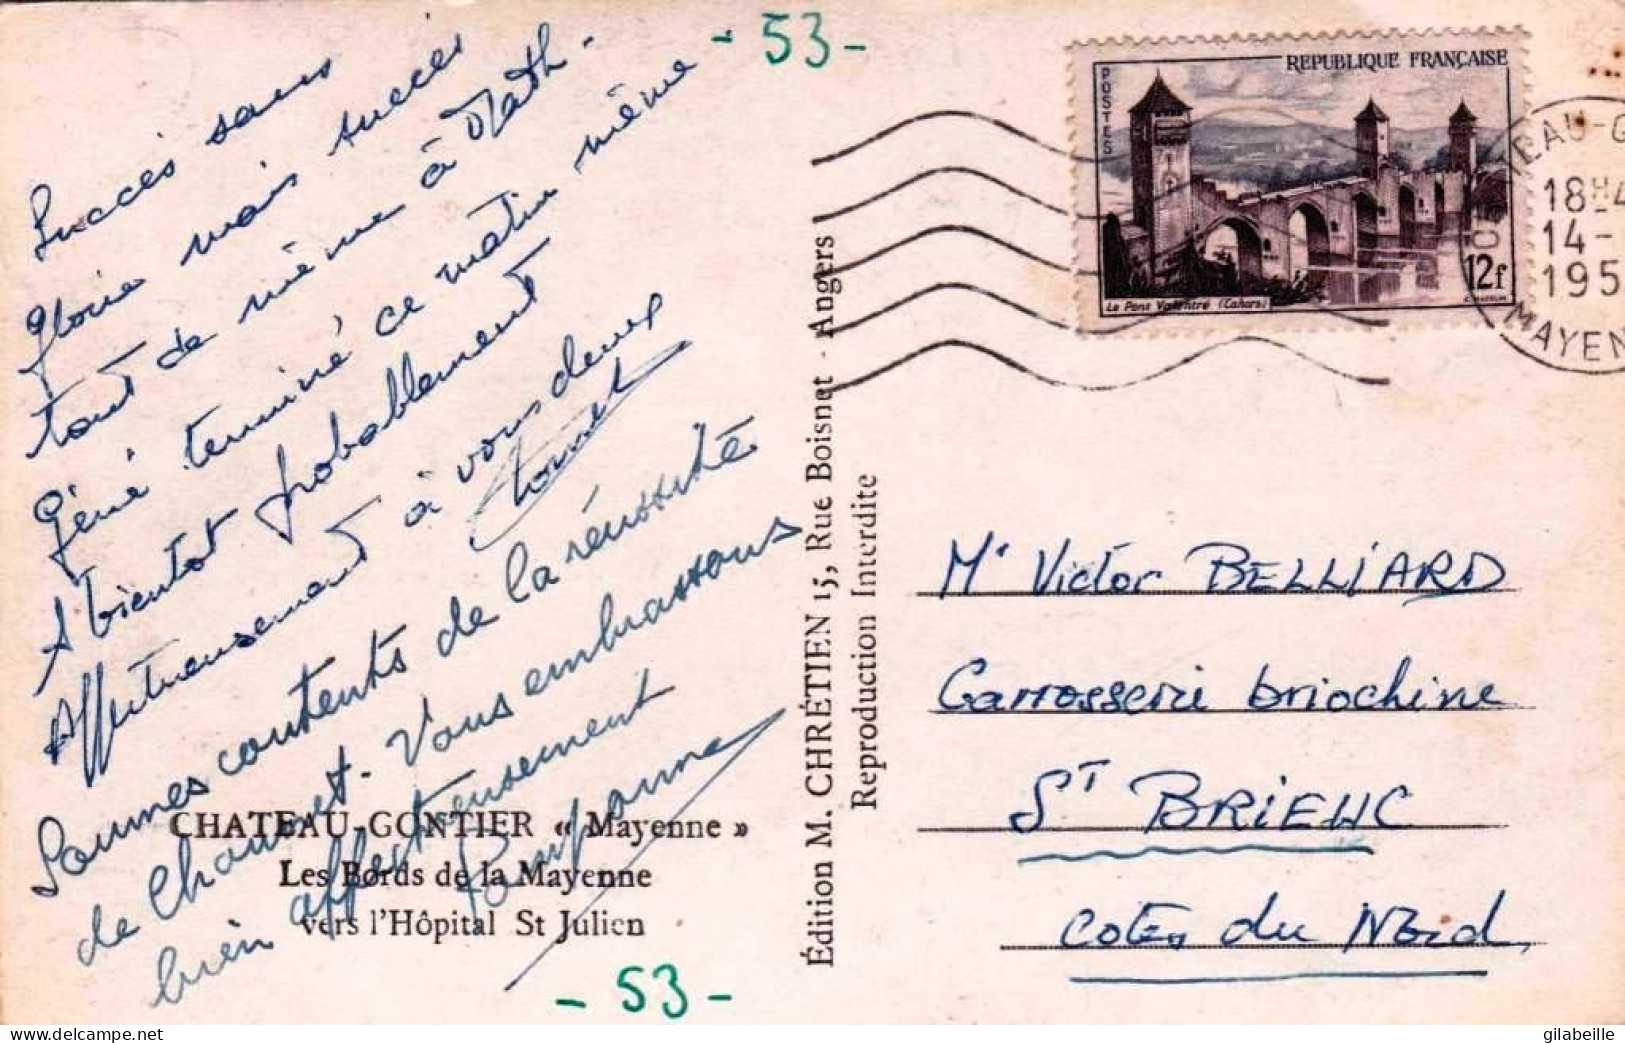 - 53 -
Succès sans
gloire mais succès
tout de même à Math -
Géné terminé ce matin même -
A bientôt probablement
Affectueusement à vous deux
Sommes contents de la réussite
de Chounet - Vous embrassons
bien affectueusement
Bonne
CHATEAU-GONTIER « Mayenne »
Les Bords de la Mayenne
vers l'Hôpital St Julien
- 53 -
Édition M. CHRÉTIEN 15, Rue Boisnet - Angers
Reproduction Interdite
REPUBLIQUE FRANÇAISE
POSTES
12f
Le Pont Valentré (Cahors)
18H4
14-
195
MAYEN
Mr Victor BELLIARD
Carrosserie briochine
ST BRIEUC
Cotes du Nord
gilabeille